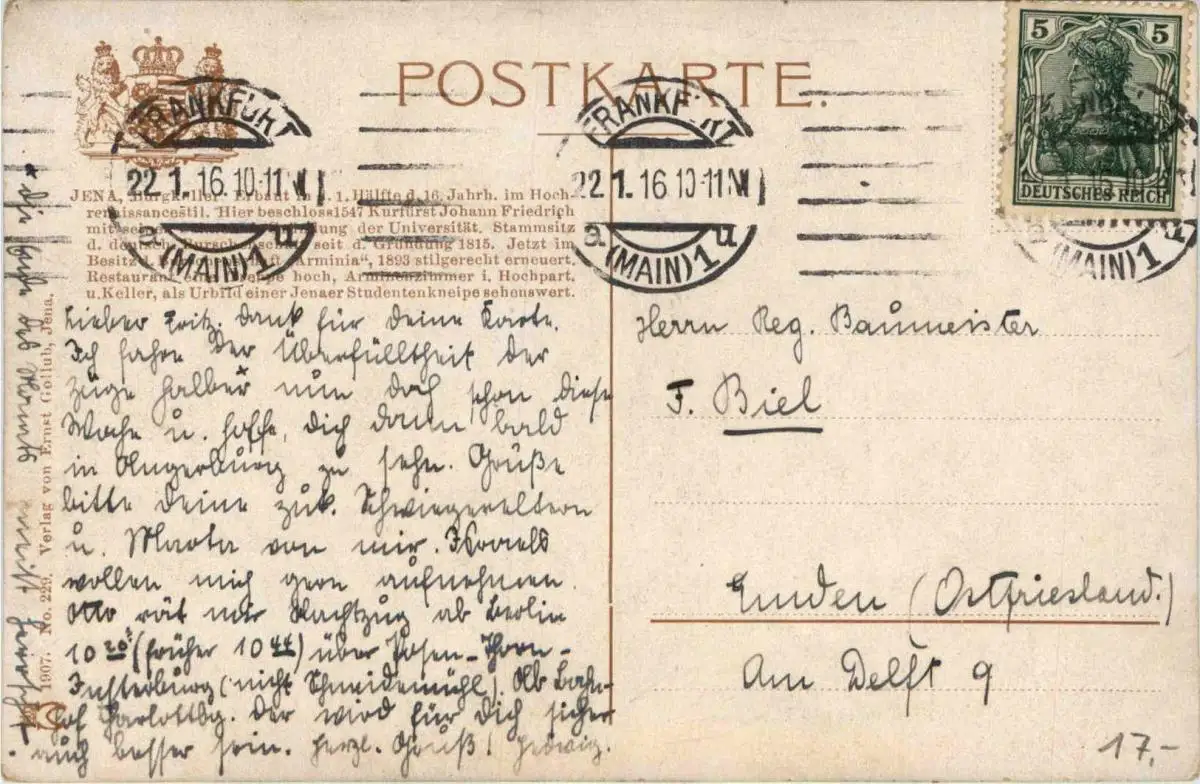 POSTKARTE.
5 5
DEUTSCHES REICH
FRANKFURT
22.1.16.10-11 V
a (MAIN) 1 u
FRANKFURT
22.1.16 10-11 V
a (MAIN) 1 u
JENA, Burgkeller Erbaut i. d. 1. Hälfte d. 16. Jahrh. im Hoch-
renaissancestil. Hier beschloss 1547 Kurfürst Johann Friedrich
mit seinen der Universität. Stammsitz
d. deutschen Burschenschaft seit d. Gründung 1815. Jetzt im
Besitz d. „Arminia“, 1893 stilgerecht erneuert.
Restaurant hoch, Arminenzimmer i. Hochpart.
u. Keller, als Urbild einer Jenaer Studentenkneipe sehenswert.
Lieber Fritz. Dank für Deine Karte.
Ich fahre der Überfülltheit der
Züge halber* nun doch schon diese
Woche u. hoffe, Dich dann bald
in Angerburg zu sehn. Grüße
bitte Deine zuk. Schwiegereltern
u. Marta von mir.
wollen mich gern aufnehmen.
Otto rät mir Nachtzug ab Berlin
10 20 (früher 10 44) über Posen-Thorn-
Insterburg (nicht Schneidemühl). Ab Bahn-
hof Charlottbg. Der wird für Dich sicher
auch besser sein. Herzl. Gruß! Hedwig.
* die Ende des Monats meist herrscht.
1907. No. 229. Verlag von Ernst Gollub, Jena.
Herrn Reg. Baumeister
F. Biel
Emden (Ostfriesland.)
Am Delft 9
17.-